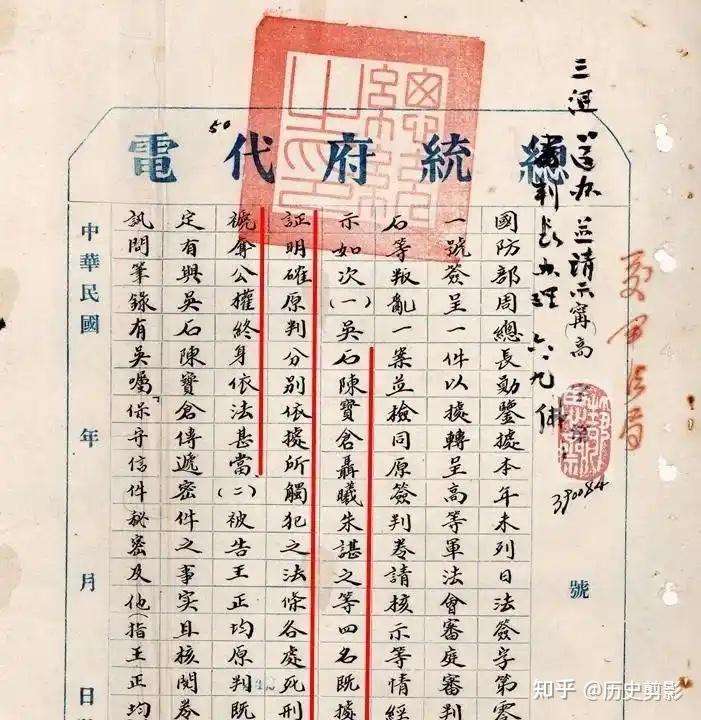 總統府代電
總統之印
50
390084
號
國防部周總長勛鑒據本年未列日法簽字第零
一號簽呈一件以據轉呈高等軍法會審庭審判
石等叛亂一案並檢同原簽判卷請核示等情經
示如次(一)吳石陳寶倉聶曦朱諶之等四名既據
証明確原判分別依據所觸犯之法條各處死刑
褫奪公權終身依法甚當(二)被告王正均原判既
定有與吳石陳寶倉傳遞密件之事實且核閱卷
訊問筆錄有吳囑「保守信件秘密及他(指王正均
中華民國 年 月 日
知乎 @历史剪影